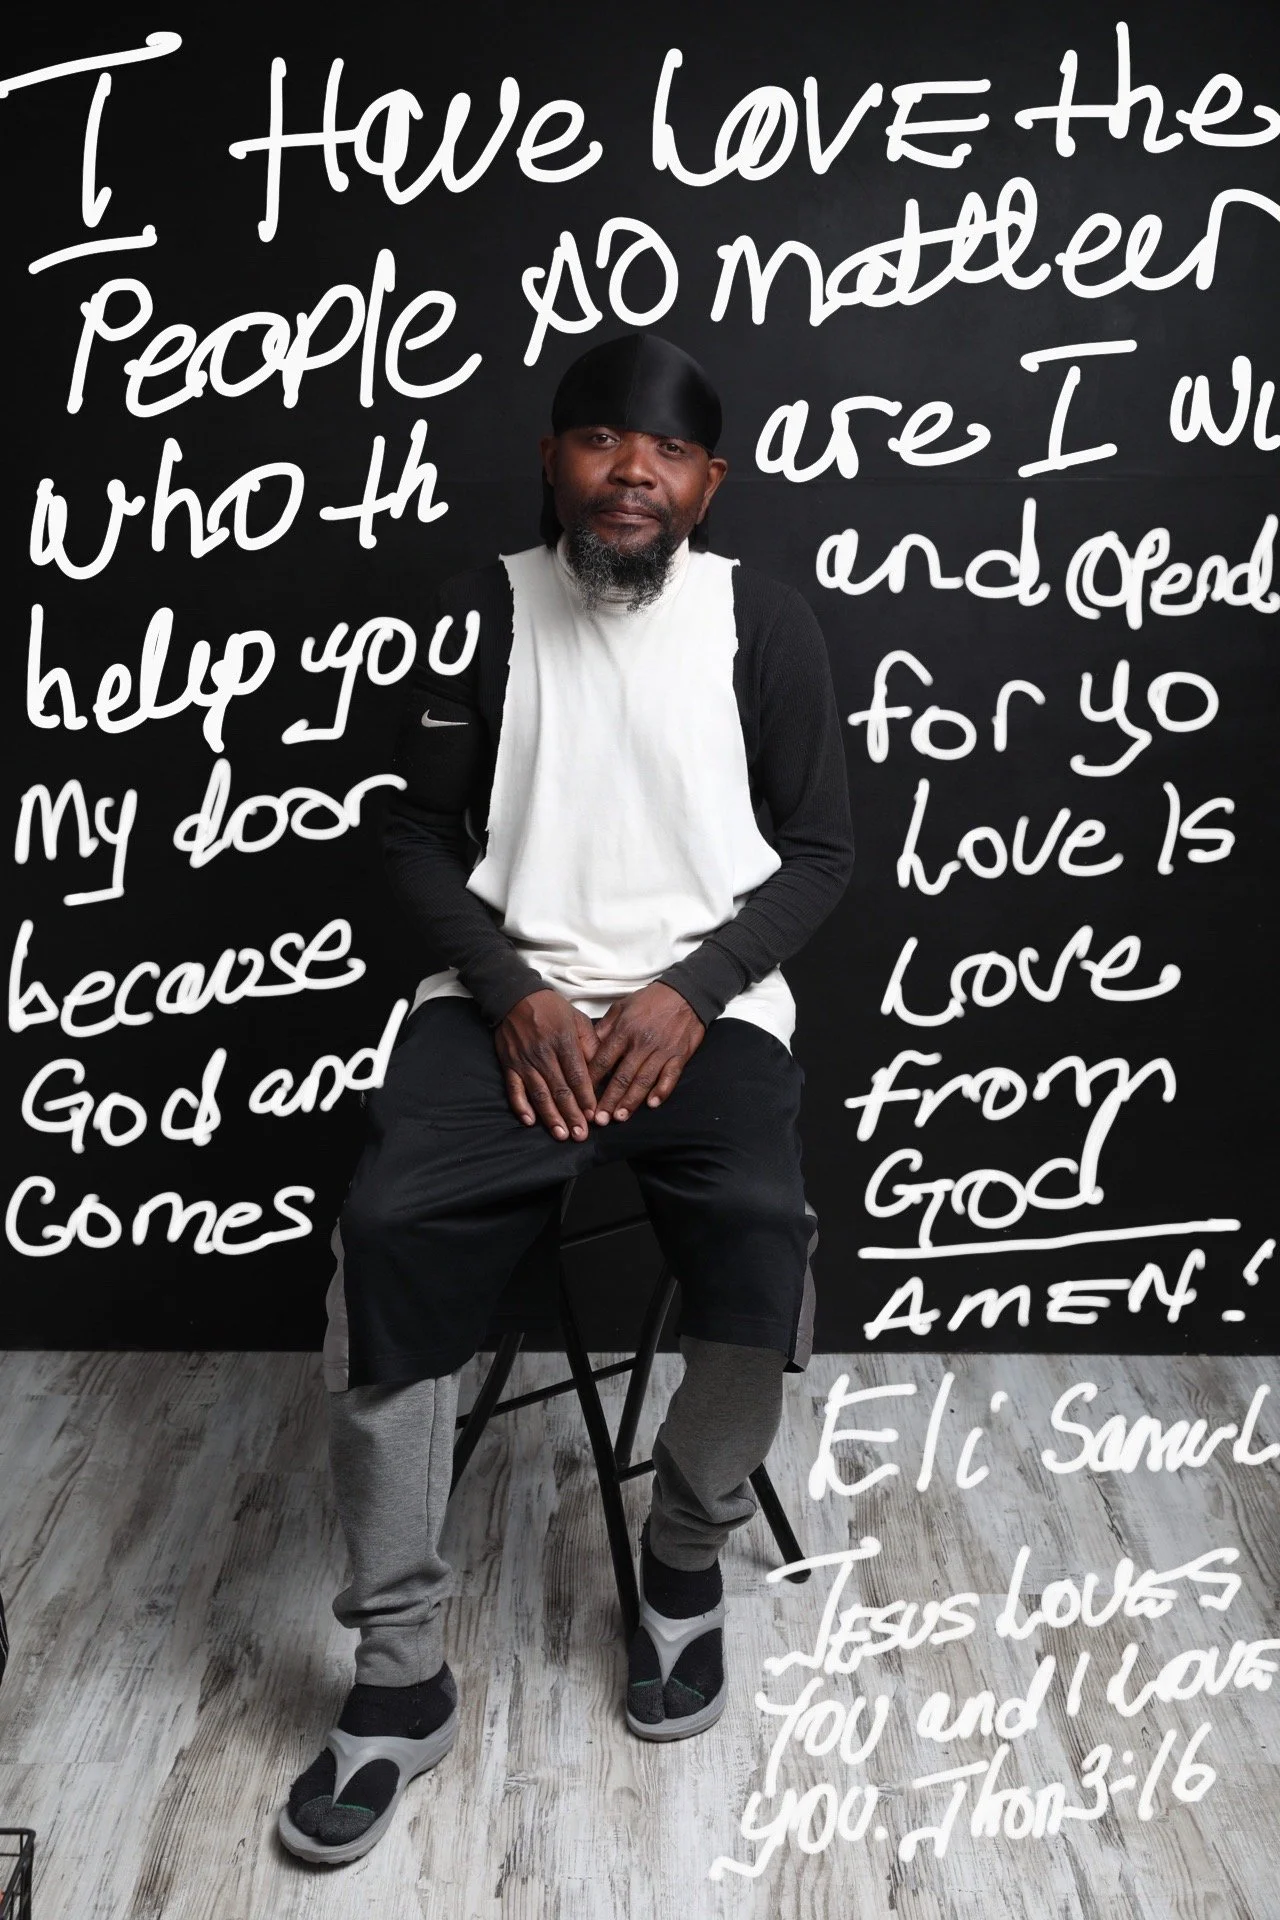 I Have LOVE the
People so matter
who th are I wi
help you and Opend
my door for yo
because Love Is
God and Love
Comes from
God
AMEN!
Eli Samuel
JESUS LOVES
YOU and I LOVE
YOU. Jhon 3:16